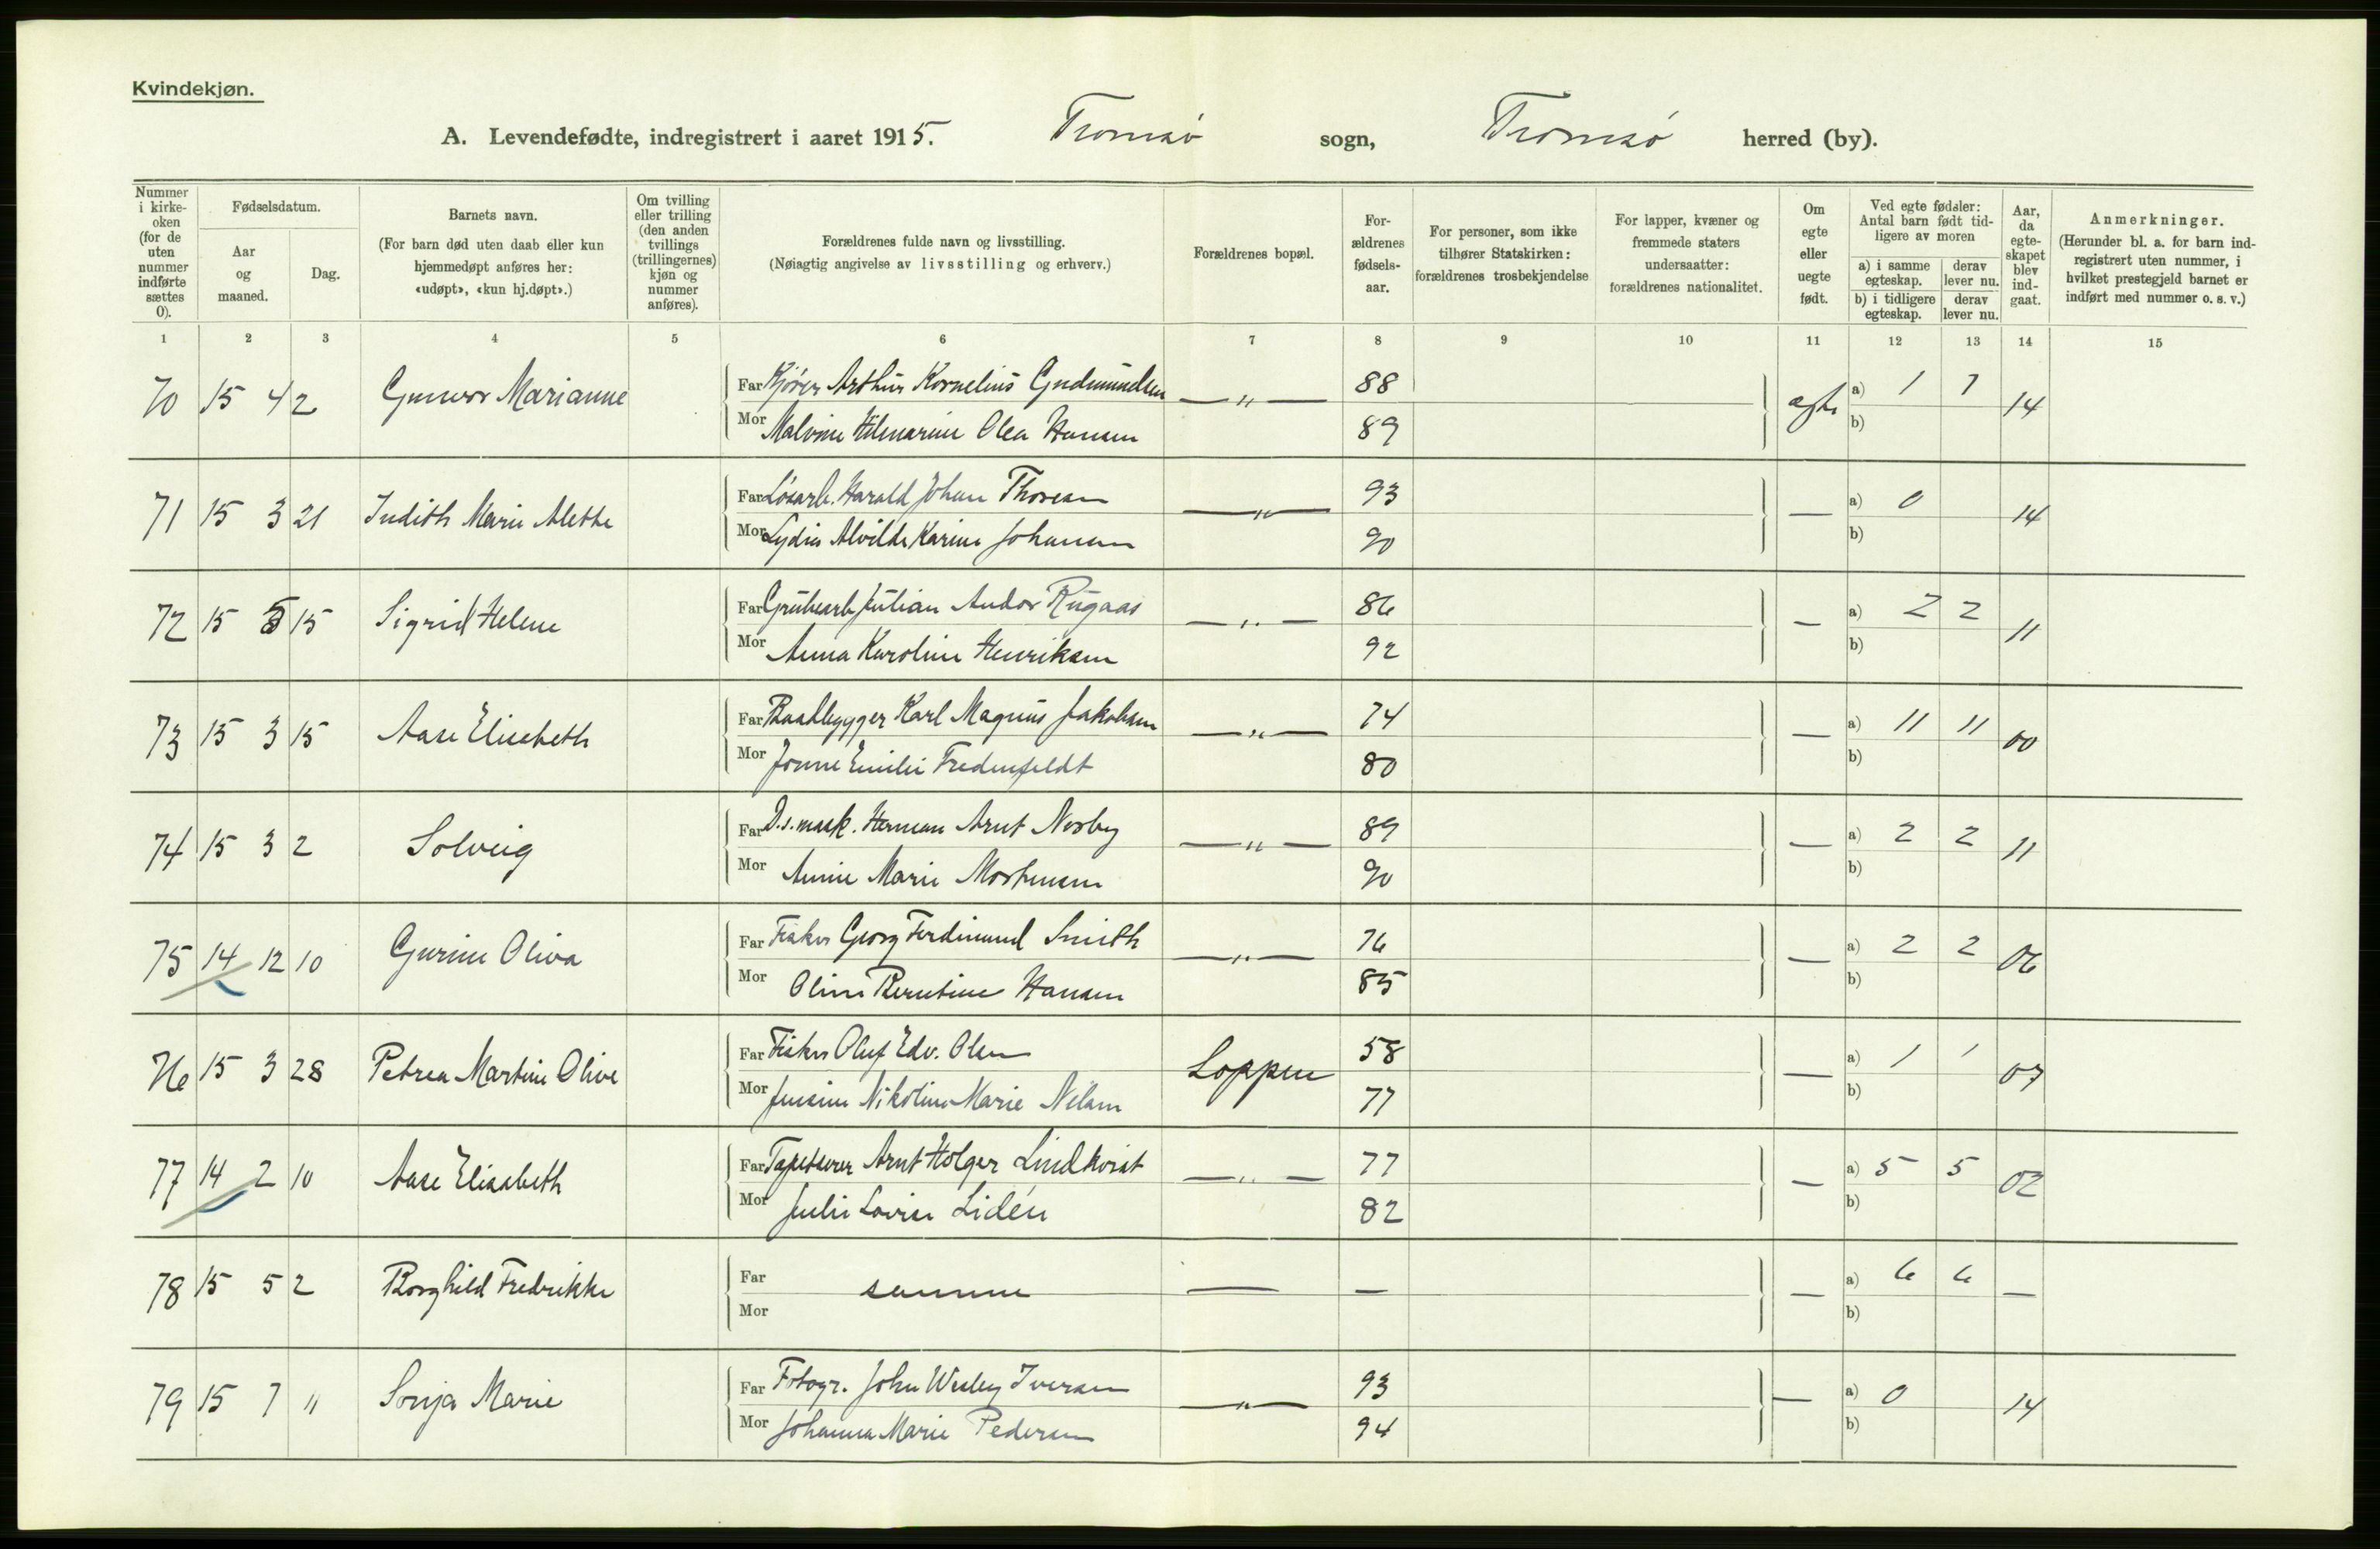 Kvindekjøn.
A. Levendefødte, indregistrert i aaret 1915. Tromsø sogn, Tromsø herred (by).
Nummer i kirke-oken (for de uten nummer indførte sættes 0).
Fødselsdatum.
Aar og maaned.
Dag.
Barnets navn.
(For barn død uten daab eller kun hjemmedøpt anføres her: «udøpt», «kun hj.døpt».)
Om tvilling eller trilling (den anden tvillings (trillingernes) kjøn og nummer anføres).
Forældrenes fulde navn og livsstilling.
(Nøiagtig angivelse av livsstilling og erhverv.)
Forældrenes bopæl.
For-ældrenes fødsels-aar.
For personer, som ikke tilhører Statskirken: forældrenes trosbekjendelse
For lapper, kvæner og fremmede staters undersaatter: forældrenes nationalitet.
Om egte eller uegte født.
Ved egte fødsler: Antal barn født tid-ligere av moren
a) i samme egteskap. derav lever nu.
b) i tidligere egteskap. derav lever nu.
Aar, da egte-skapet blev ind-gaat.
Anmerkninger.
(Herunder bl. a. for barn ind-registrert uten nummer, i hvilket prestegjeld barnet er indført med nummer o. s. v.)
1 2 3 4 5 6 7 8 9 10 11 12 13 14 15
70 15 4 2 Gunvor Marianne Far Kjører Arthur Kornelius Gudmundsen — " — 88 egte a) 1 1 14
Mor Malvine Hilmarine Olea Hansen 89 b)
71 15 3 21 Judith Marie Alette Far Løsarb. Harald Johan Thoresen — " — 93 — a) 0 14
Mor Lydia Alvilde Karine Johansen 90 b)
72 15 5 15 Sigrid Helene Far Grubearb. Julian Andor Rugaas — " — 86 — a) 2 2 11
Mor Anna Karoline Henriksen 92 b)
73 15 3 15 Aase Elisabeth Far Baadbygger Karl Magnus Jakobsen — " — 74 — a) 11 11 00
Mor Emilie Fredenfeldt 80 b)
74 15 3 2 Solveig Far D.s. mask. Herman Arnt Nesby — " — 89 — a) 2 2 11
Mor Annie Marie Mortensen 90 b)
75 14 12 10 Gurine Oliva Far Fisker Georg Ferdinand Smith — " — 76 — a) 2 2 06
Mor Oline Berntine Hansen 85 b)
76 15 3 28 Petrea Martine Olive Far Fisker Oluf Edv. Olsen Loppen 58 — a) 1 1 07
Mor Jensine Nikoline Marie Nilsen 77 b)
77 14 2 10 Aase Elisabeth Far Tapetserer Arnt Holger Lindkvist — " — 77 — a) 5 5 02
Mor Julie Lovise Lidén 82 b)
78 15 5 2 Borghild Fredrikke Far samme — — — a) 6 6 —
Mor b)
79 15 7 " Sonja Marie Far Fotogr. John Wesley Iversen — " — 93 — a) 0 14
Mor Johanna Marie Pedersen 94 b)